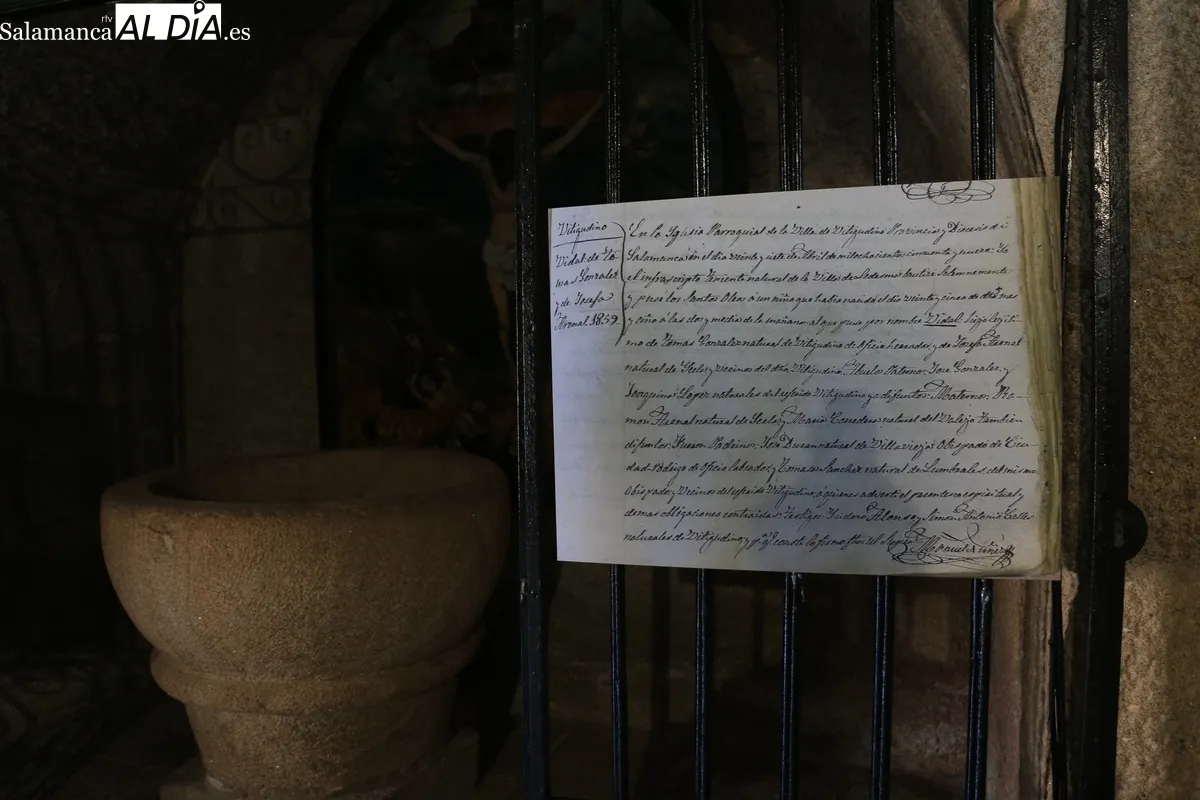 rtv
SalamancaALDÍA.es
Vitigudino
Vidal de To-
mas Gonzalez
y de Josefa
Arenal. 1859.
En la Yglesia Parroquial de la Villa de Vitigudino Provincia y Diocesis de
Salamanca en el dia veinte y siete de Abril de mil ochocientos cincuenta y nueve: Yo
el infrascripto Teniente natural de la Villa de Ledesma bautice Solemnemente
y puse los Santos Oleos á un niño que habia nacido el dia veinte y cinco de dho mes
y año á las dos y media de la mañana, al que puse por nombre Vidal hijo legiti-
mo de Tomas Gonzalez natural de Vitigudino de oficio herrador, y de Josefa Arenal
natural de y vecinos del dho Vitigudino. Abuelos Paternos: Jose Gonzalez, y
Joaquina Lopez naturales del referido Vitigudino ya difuntos: Maternos: Ra-
mon Arenal natural de y Maria Corredera natural del Valejo tambien
difuntos: Fueron Padrinos: Jose Duran natural de Villavieja Obispado de Ciu-
dad-Rodrigo de oficio labrador, y Tomasa Sanchez natural de Lumbrales del mismo
Obispado, y Vecinos del referido Vitigudino, á quienes adverti el parentesco espiritual y
demas obligaciones contraidas: Testigos: Ysidoro Alonso y Simon Antonio
naturales de Vitigudino, y pa. qe. conste lo firmo
Manuel Nuñez